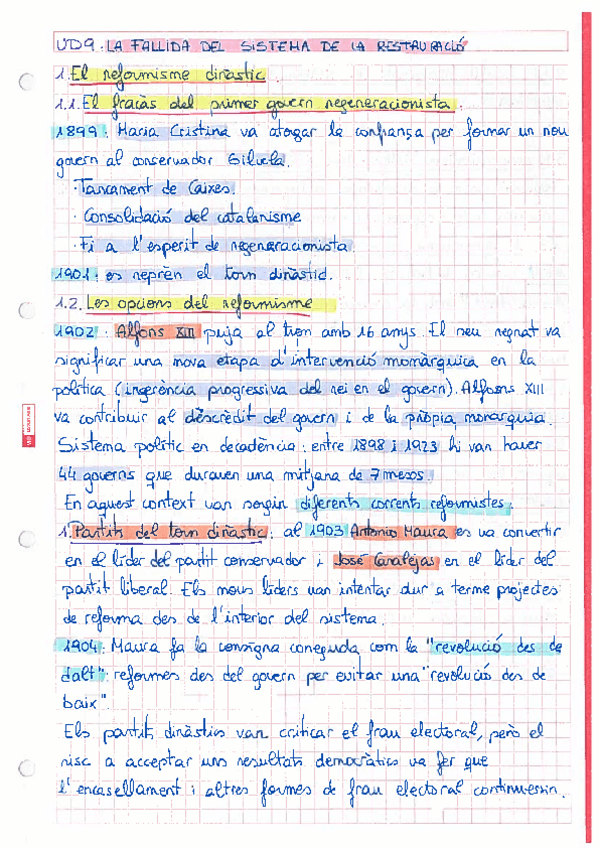 UD9. LA FALLIDA DEL SISTEMA DE LA RESTAURACIÓ
1. El reformisme dinàstic.
1.1. El fracàs del primer govern regeneracionista.
1899: Maria Cristina va atorgar la confiança per formar un nou
govern al conservador Silvela.
· Tancament de Caixes.
· Consolidació del catalanisme
· Fi a l'esperit de regeneracionista.
1901: es reprèn el torn dinàstic.
1.2. Les opcions del reformisme
1902: Alfons XIII puja al tron amb 16 anys. El seu regnat va
significar una nova etapa d'intervenció monàrquica en la
política (ingerència progressiva del rei en el govern). Alfons XIII
va contribuir al descrèdit del govern i de la pròpia monarquia.
Sistema polític en decadència: entre 1898 i 1923 hi van haver
44 governs que duraven una mitjana de 7 mesos.
En aquest context van sorgir diferents corrents reformistes:
1. Partits del torn dinàstic: al 1903 Antonio Maura es va convertir
en el líder del partit conservador i José Canalejas en el líder del
partit liberal. Els nous líders van intentar dur a terme projectes
de reforma des de l'interior del sistema.
1904: Maura fa la consigna coneguda com la "revolució des de
dalt": reformes des del govern per evitar una "revolució des de
baix".
Els partits dinàstics van criticar el frau electoral, però el
risc a acceptar uns resultats democràtics va fer que
l'encasellament i altres formes de frau electoral continuessin.